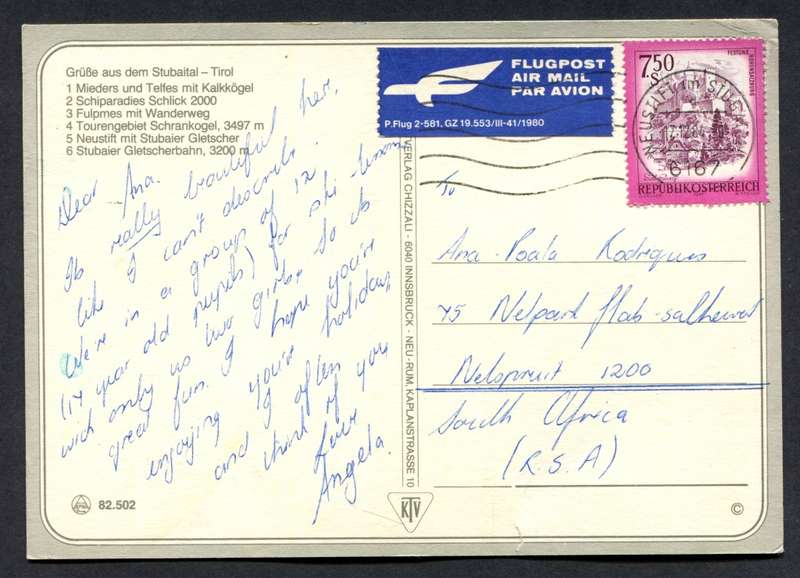 Grüße aus dem Stubaital – Tirol
1 Mieders und Telfes mit Kalkkögel
2 Schiparadies Schlick 2000
3 Fulpmes mit Wanderweg
4 Tourengebiet Schrankogel, 3497 m
5 Neustift mit Stubaier Gletscher
6 Stubaier Gletscherbahn, 3200 m
Dear Ana.
Its really beautiful her,
like I can't describe.
We're in a group of 12
(17 year old pupils) for ski-lessons
wich only us two girls. So its
great fun. I hope you're
enjoying you're holidays
and I often
think of you
Love
Angela.
82.502
VERLAG CHIZZALI - 6040 INNSBRUCK - NEU-RUM, KAPLANSTRASSE 10
KTV
©
FLUGPOST
AIR MAIL
PAR AVION
P.Flug 2-581, GZ 19.553/III-41/1980
7.50
S
FESTUNG
HOHENSALZBURG
REPUBLIK ÖSTERREICH
6167
To
Ana-Poala Rodrigues
75 Nelpark flats-
Nelspruit 1200
South Africa
(R.S.A)